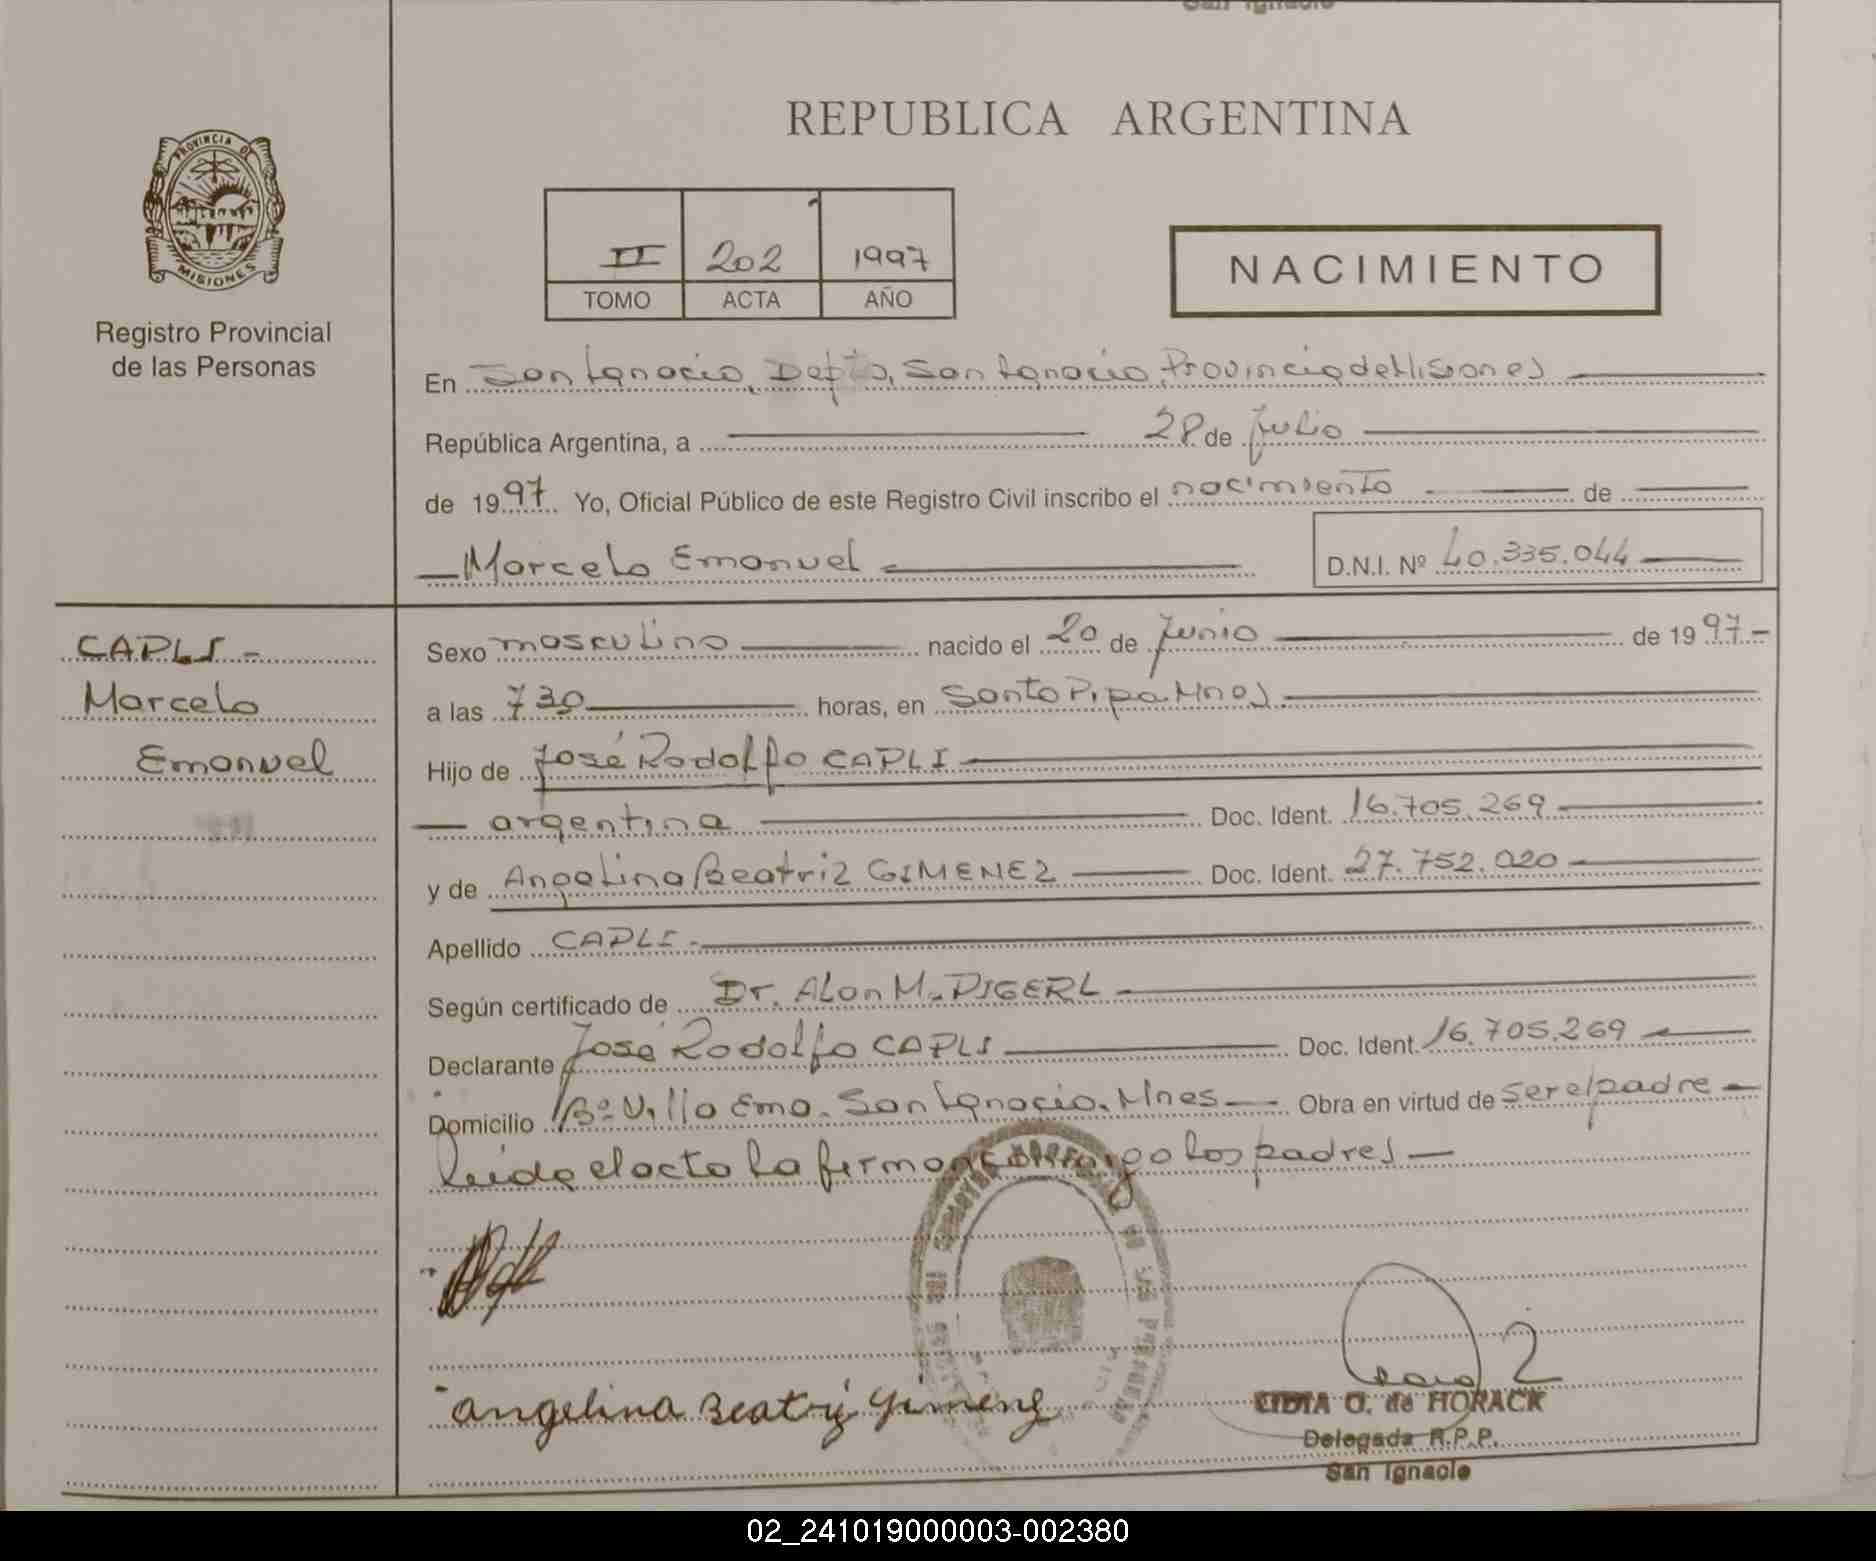 San Ignacio
REPUBLICA ARGENTINA
PROVINCIA DE
MISIONES
Registro Provincial
de las Personas
II 202 1997
TOMO ACTA AÑO
NACIMIENTO
En San Ignacio, Depto, San Ignacio, Provincia de Misiones
República Argentina, a 28 de Julio
de 1997 Yo, Oficial Público de este Registro Civil inscribo el nacimiento de
Marcelo Emanuel D.N.I. Nº 40.335.044
CAPLI -
Marcelo
Emanuel
Sexo masculino nacido el 20 de Junio de 1997 -
a las 730 horas, en Santo Pipo. Mnes.
Hijo de José Rodolfo CAPLI
argentina Doc. Ident. 16.705.269
y de Angelina Beatriz GIMENEZ Doc. Ident. 27.752.020
Apellido CAPLI -
Según certificado de Dr. ALon M. PIGERL
Declarante José Rodolfo CAPLI Doc. Ident. 16.705.269
Domicilio Bº Villa Ema. San Ignacio. Mnes Obra en virtud de ser el padre
Leida el acta la firman conmigo los padres
angelina Beatriz Gimenez
LIDIA O. de HORACK
Delegada R.P.P.
San Ignacio
02_241019000003-002380